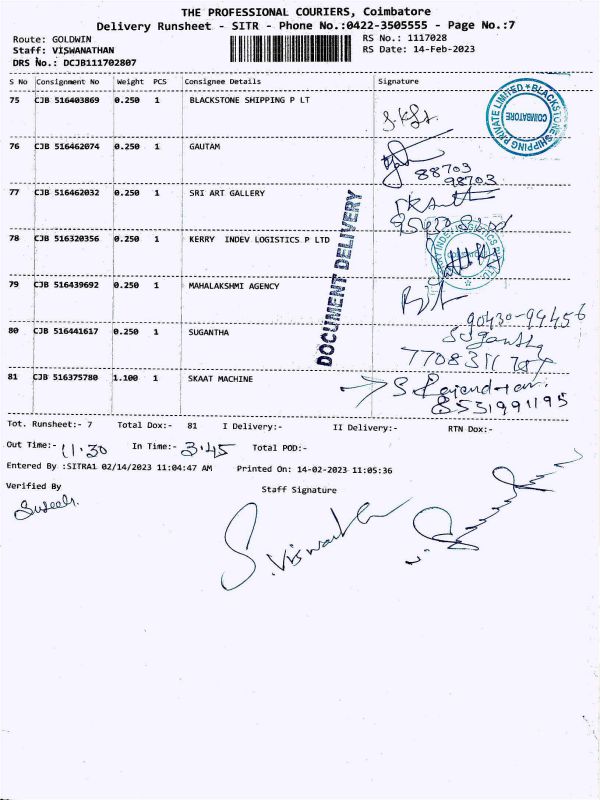 THE PROFESSIONAL COURIERS, Coimbatore
Delivery Runsheet - SITR - Phone No.:0422-3505555 - Page No.:7
Route: GOLDWIN
RS No.: 1117028
Staff: VISWANATHAN
RS Date: 14-Feb-2023
DRS No.: DCJB111702807
S No Consignment No Weight PCS Consignee Details Signature
75 CJB 516403869 0.250 1 BLACKSTONE SHIPPING P LT
BLACKSTONE SHIPPING PRIVATE LIMITED
COIMBATORE
76 CJB 516462074 0.250 1 GAUTAM
88703
98703
77 CJB 516462032 0.250 1 SRI ART GALLERY
78 CJB 516320356 0.250 1 KERRY INDEV LOGISTICS P LTD
DOCUMENT DELIVERY
79 CJB 516439692 0.250 1 MAHALAKSHMI AGENCY
90430-94456
80 CJB 516441617 0.250 1 SUGANTHA
81 CJB 516375780 1.100 1 SKAAT MACHINE
8531991195
Tot. Runsheet:- 7 Total Dox:- 81 I Delivery:- II Delivery:- RTN Dox:-
Out Time:- 11.30 In Time:- 3.45 Total POD:-
Entered By :SITRA1 02/14/2023 11:04:47 AM Printed On: 14-02-2023 11:05:36
Verified By
Staff Signature